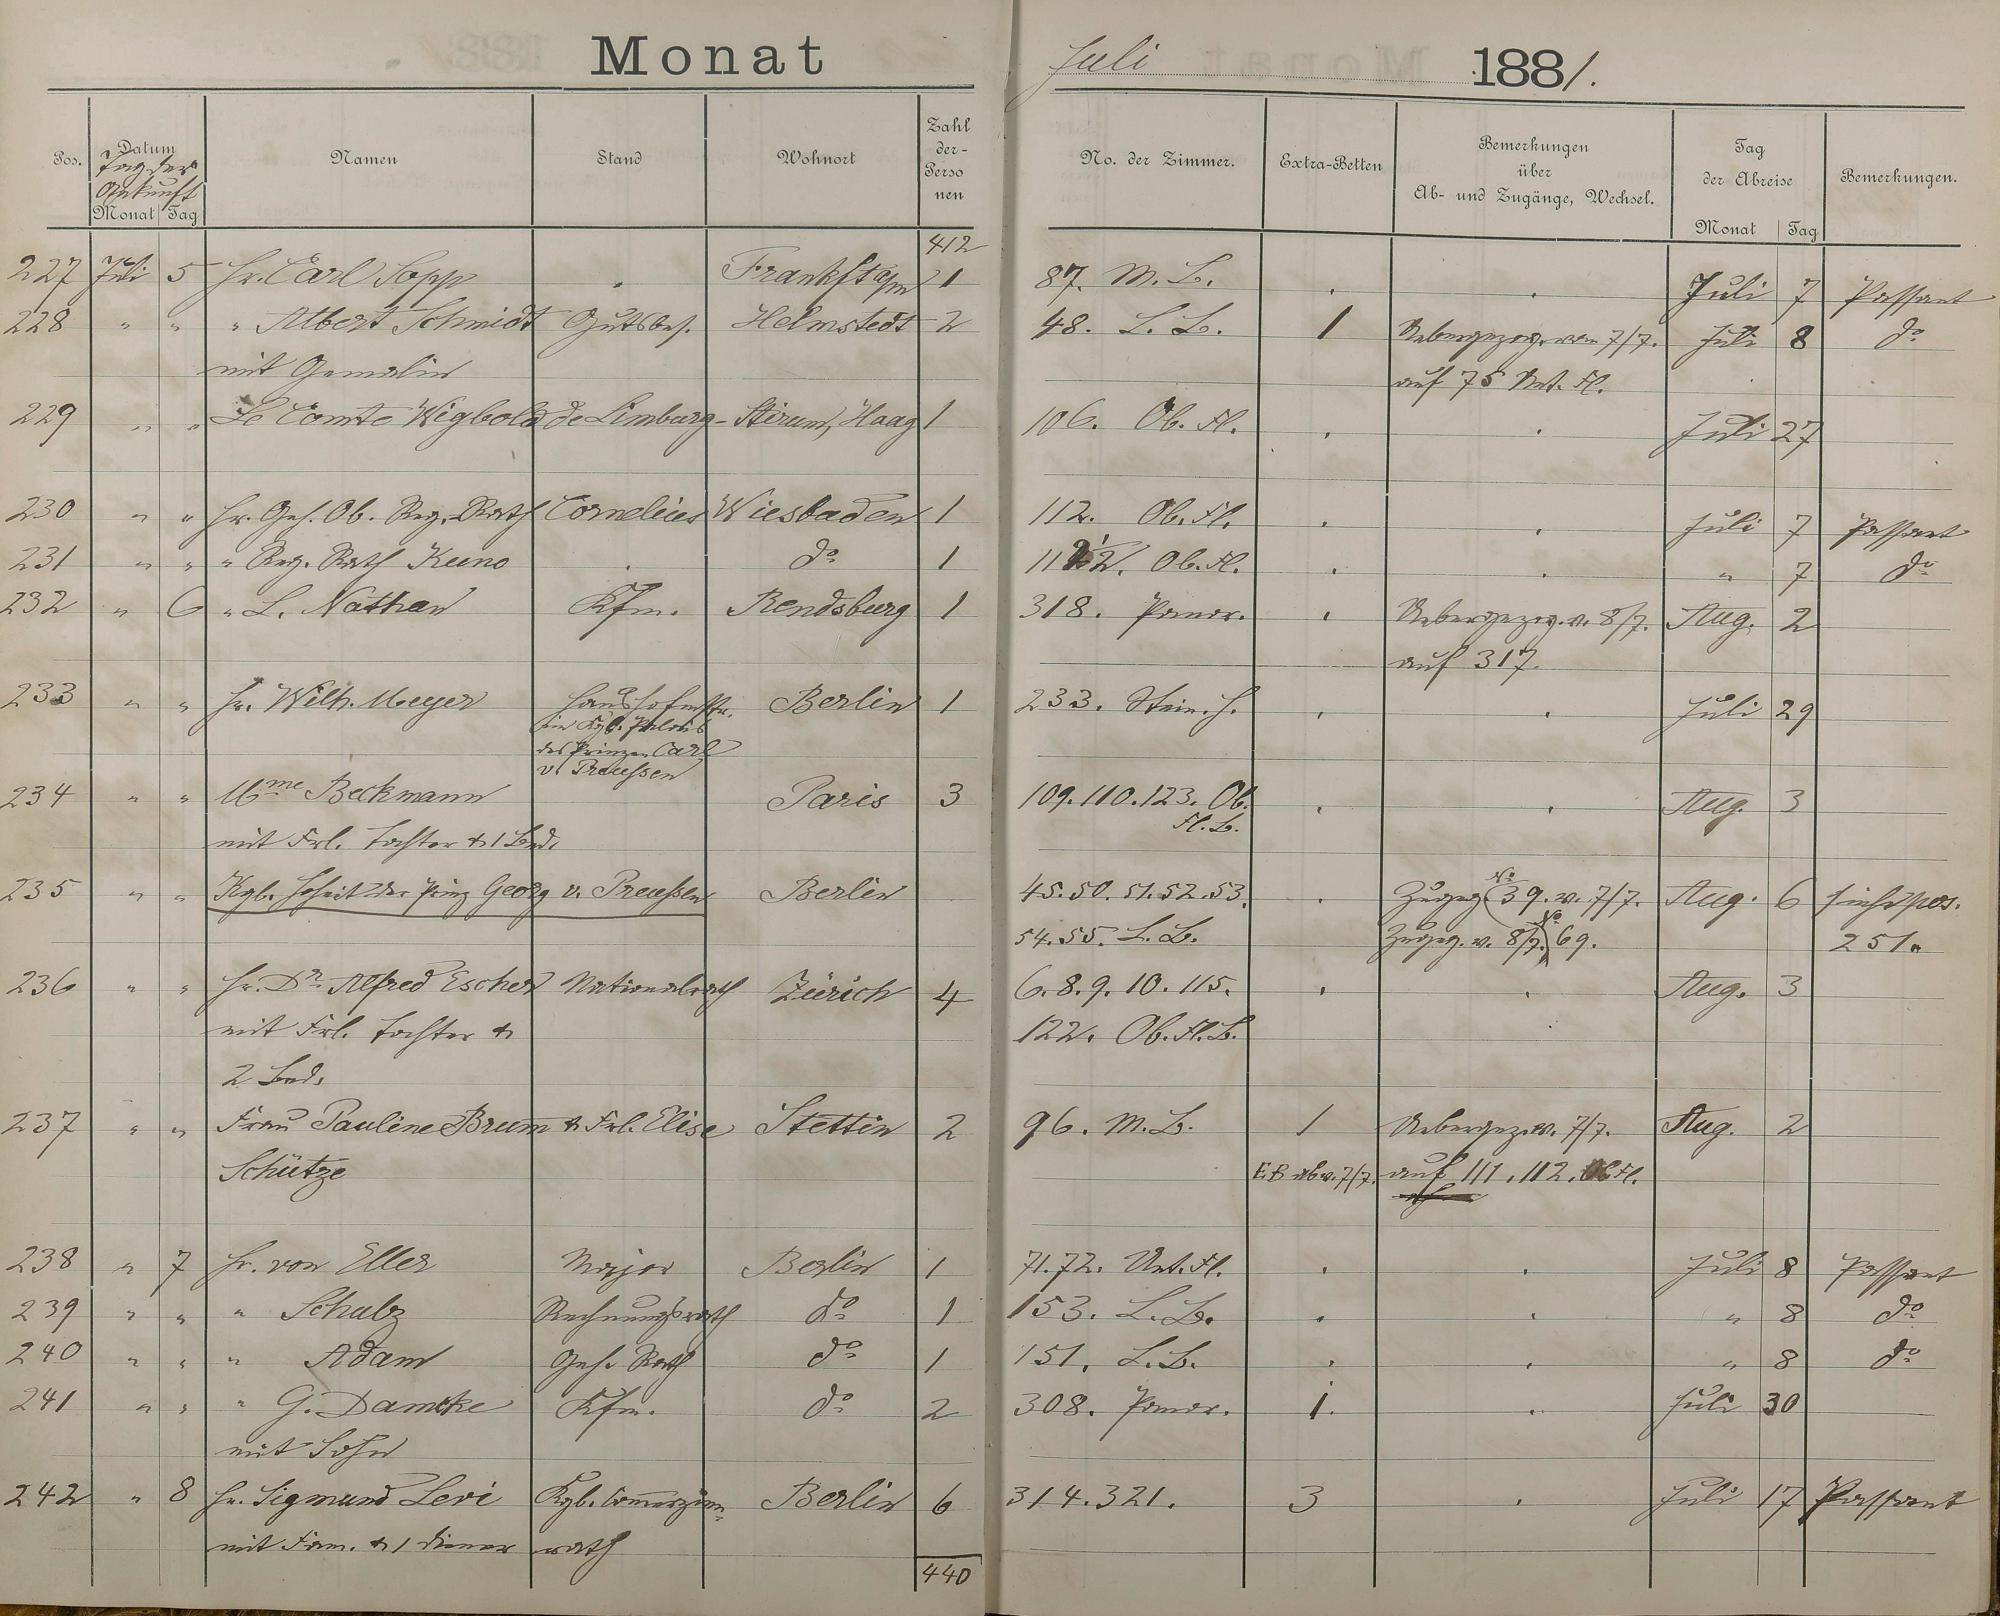 Monat Juli 1881.
Pos. Datum Namen Stand Wohnort Zahl der Perso nen No. der Zimmer. Extra-Betten Bemerkungen über Ab- und Zugänge, Wechsel. Tag der Abreise Bemerkungen.
Tag der Ankunft
Monat Tag Monat Tag
412
227 Juli 5 Hr. Carl Sopp . Frankft a/m 1 87. M. B. . . Juli 7 Passant
228 " " " Albert Schmidt Gutsbes. Helmstedt 2 48. L. B. 1 Uebergezog. von 7/7. Juli 8 do
mit Gemalin auf 75 Unt. Fl.
229 " " Le Comte Wigbold de Limburg-Stirum, Haag 1 106. Ob. Fl. . . Juli 27
230 " " Hr. Geh. Ob. Reg. Rath Cornelius Wiesbaden 1 112. Ob. Fl. . . Juli 7 Passant
231 " " " Reg. Rath Kuno . do 1 Ob. Fl. . . " 7 do
232 " 6 " L. Nathan Kfm. Rendsburg 1 318. Pomar. . Uebergezog. v. 8/7. Aug. 2
auf 317.
233 " " Hr. Wilh. Meyer Haushofmstr. Berlin 1 233. Stein. H. . . Juli 29
im Kgl. Palais
des Prinzen Carl
v. Preussen
234 " " Mme Beckmann Paris 3 109. 110. 123. Ob. . . Aug. 3
Fl. B.
mit Frl. Tochter & 1 Bed.
235 " " Kgl. Hoheit der Prinz Georg v. Preussen Berlin 45. 50. 51. 52. 53. . Zugez. No 39. v. 7/7. Aug. 6 siehe pos.
54. 55. L. B. Zugez. v. 8/7. No 69. 251.
236 " " Hr. Dr. Alfred Escher Nationalrath Zürich 4 6. 8. 9. 10. 115. . . Aug. 3
mit Frl. Tochter & 122. Ob. Fl. B.
2 Bed.
237 " " Frau Pauline Brumm & Frl. Elise Stettin 2 96. M. B. 1 Uebergez. v. 7/7. Aug. 2
Schütze E.B ab v. 7/7. auf 111. 112. Ob Fl.
238 " 7 Hr. von Eller Major Berlin 1 71. 72. Unt. Fl. . . Juli 8 Passant
239 " " " Schulz Rechnungsrath do 1 153. L. B. . . " 8 do
240 " " " Adam Geh. Rath do 1 151. L. B. . . " 8 do
241 " " " G. Damcke Kfm. do 2 308. Pomar. 1. . Juli 30
mit Sohn
242 " 8 Hr. Sigmund Levi Kgl. Commerzien- Berlin 6 314. 321. 3 . Juli 17 Passant
mit Fam. & 1 Diener rath
440